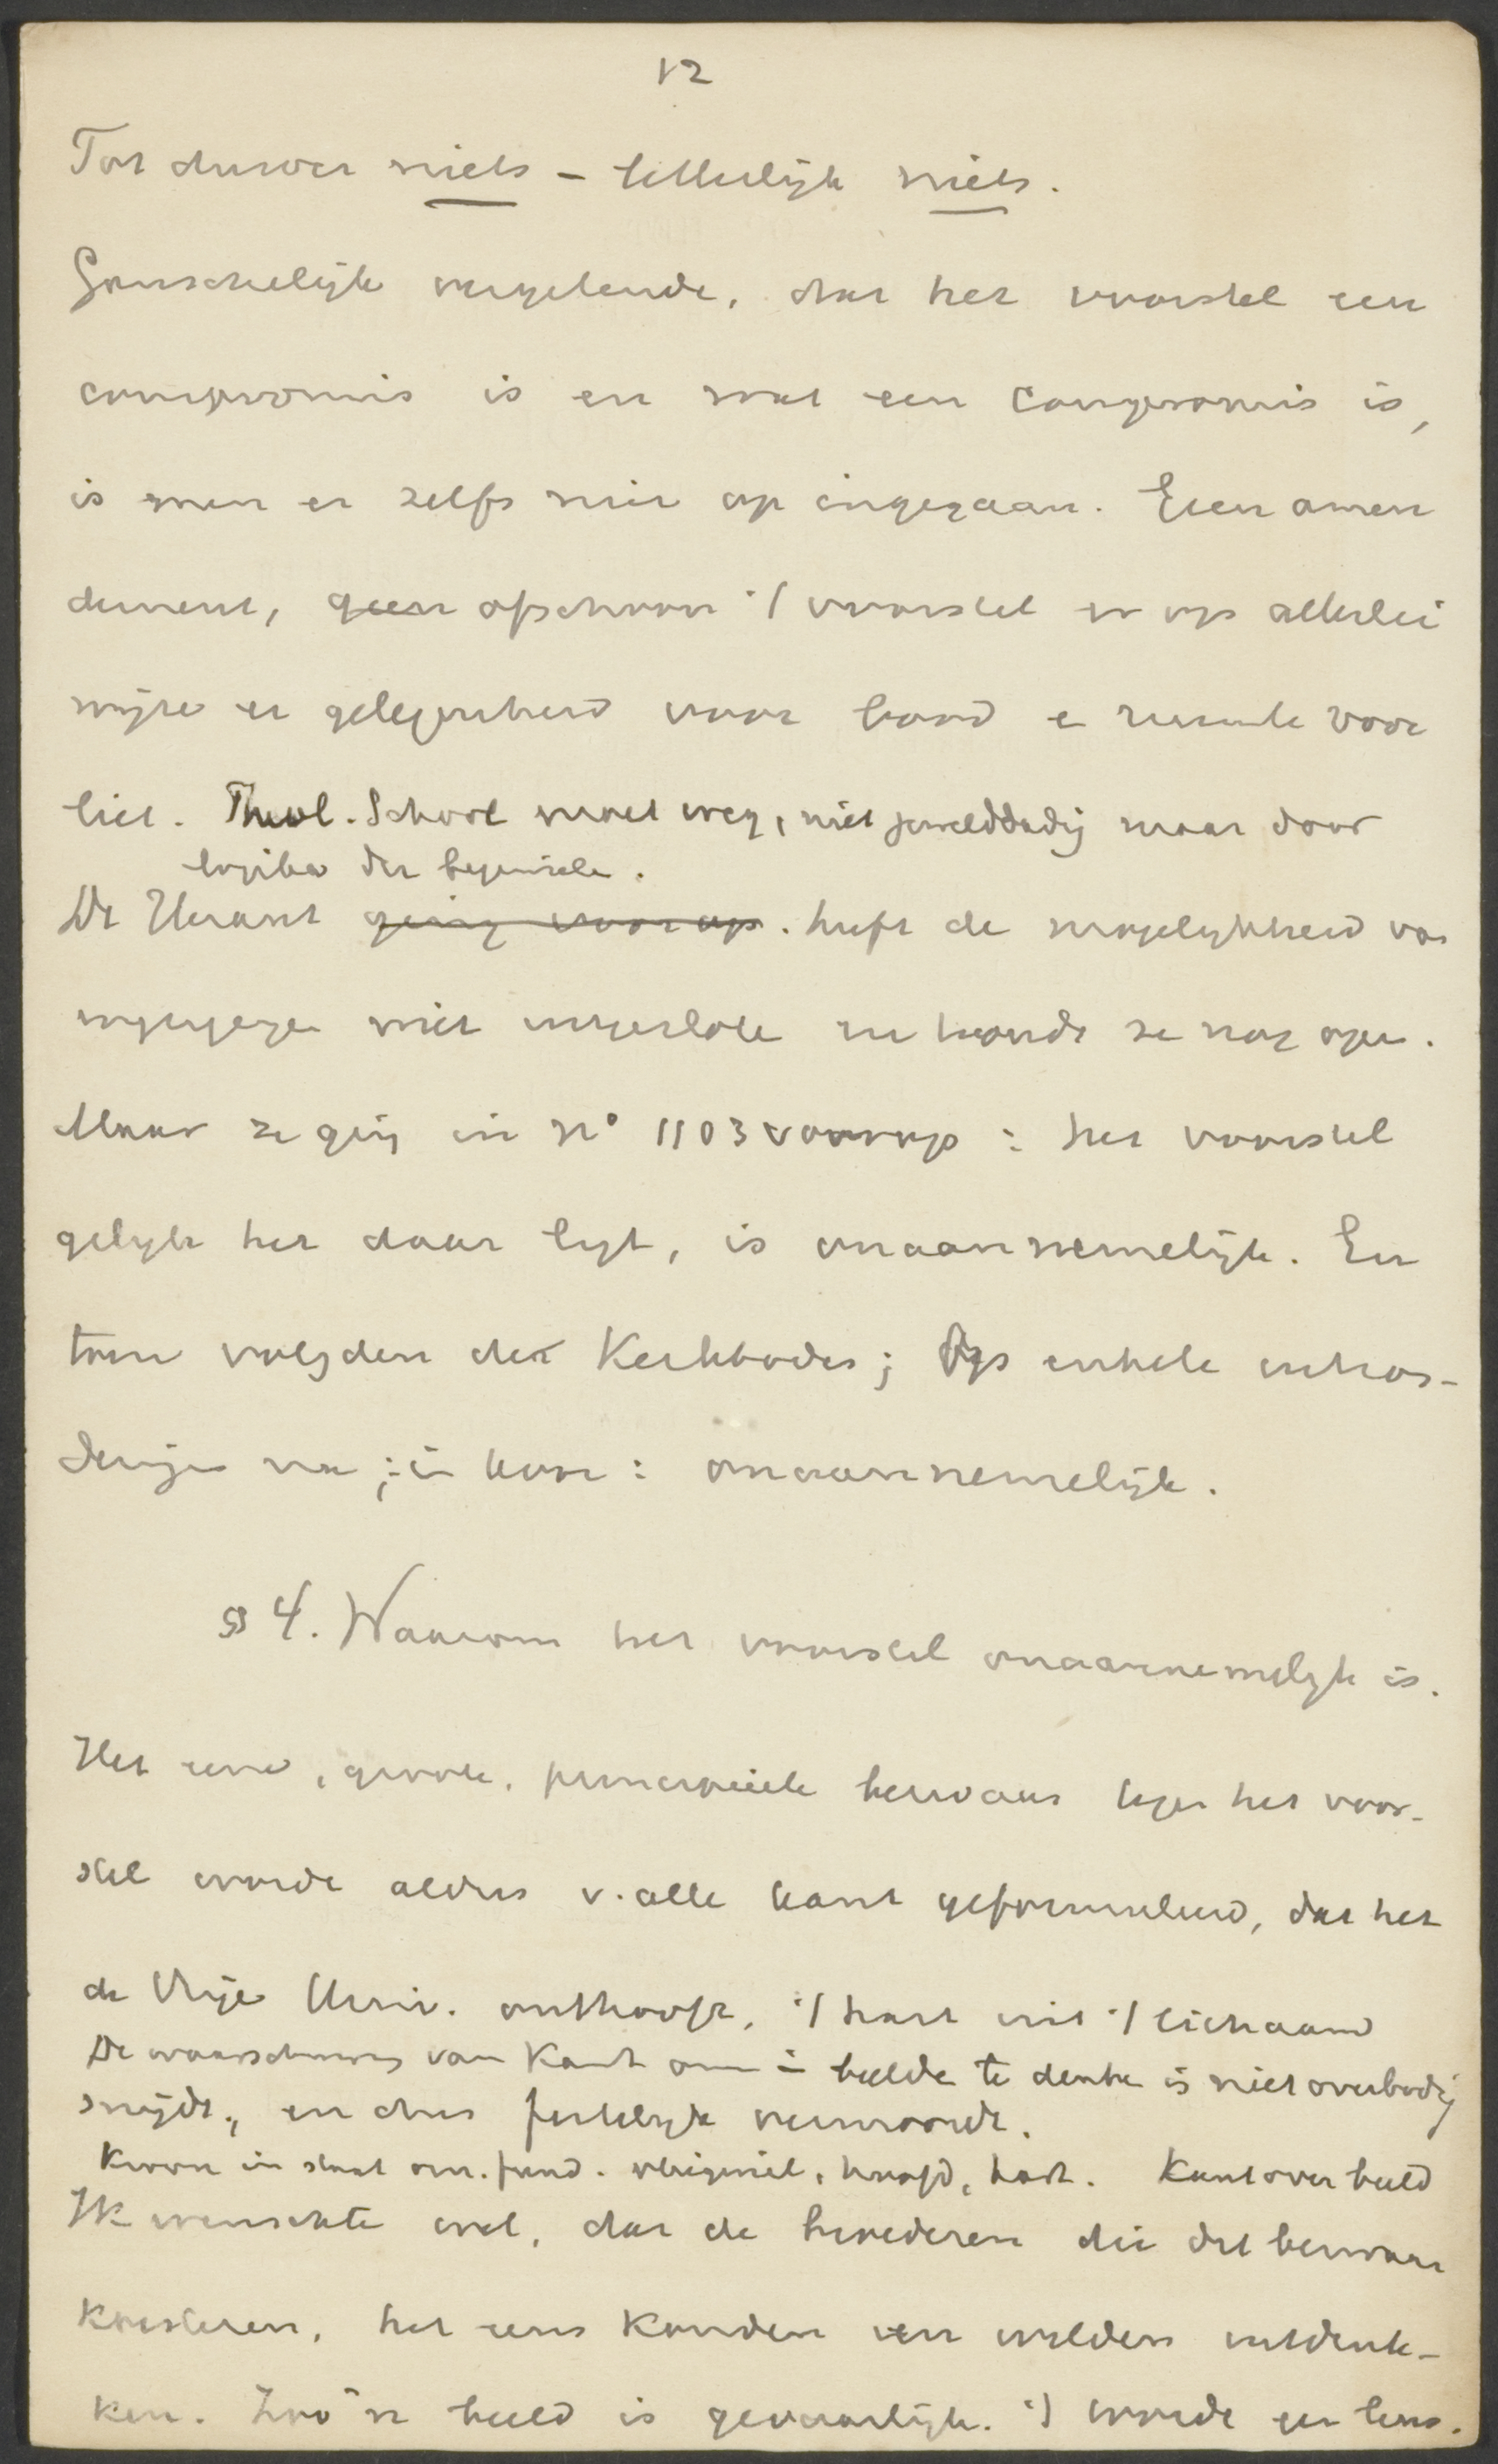 12
Tot dusver niets - letterlijk niets.
Ganschelijk vergetende, dat het voorstel een
compromis is en wat een compromis is,
is men er zelfs niet op ingegaan. Geen amen
dement, geen ofschoon 't voorstel er op allerlei
wijze er gelegenheid voor bood e ruimte voor
liet. Theol. School moet weg, niet gewelddadig maar door
logika der beginselen.
De Heraut ging voorop. heeft de mogelijkheid van
niet uitgesloten en houdt ze nog open.
Maar ze ging in No 1103 voorop: het voorstel
gelijk het daar ligt, is onaannemelijk. En
toen volgden de Kerkbodes; Op enkele uitzon-
deringen na; in koor: onaannemelijk.
§ 4. Waarom het voorstel onaannemelijk is.
Het eene, groote, principieele bezwaar tegen het voor-
stel wordt aldus v. alle kant geformuleerd, dat het
de Vrije Univ. onthooft, 't hart uit 't lichaam
De waarschuwing van Kant om in beelde te denken is niet overbodig
snijdt, en dus feitelijk vermoordt.
Kroon in staat om. fund. beginsel, hoofd, hart. Kant over beeld
Ik wenschte wel, dat de broederen die dit bezwaar
koesteren, het eens konden en wilden uitdenk-
ken. Zoo'n beeld is gevaarlijk. 't wordt een leus.